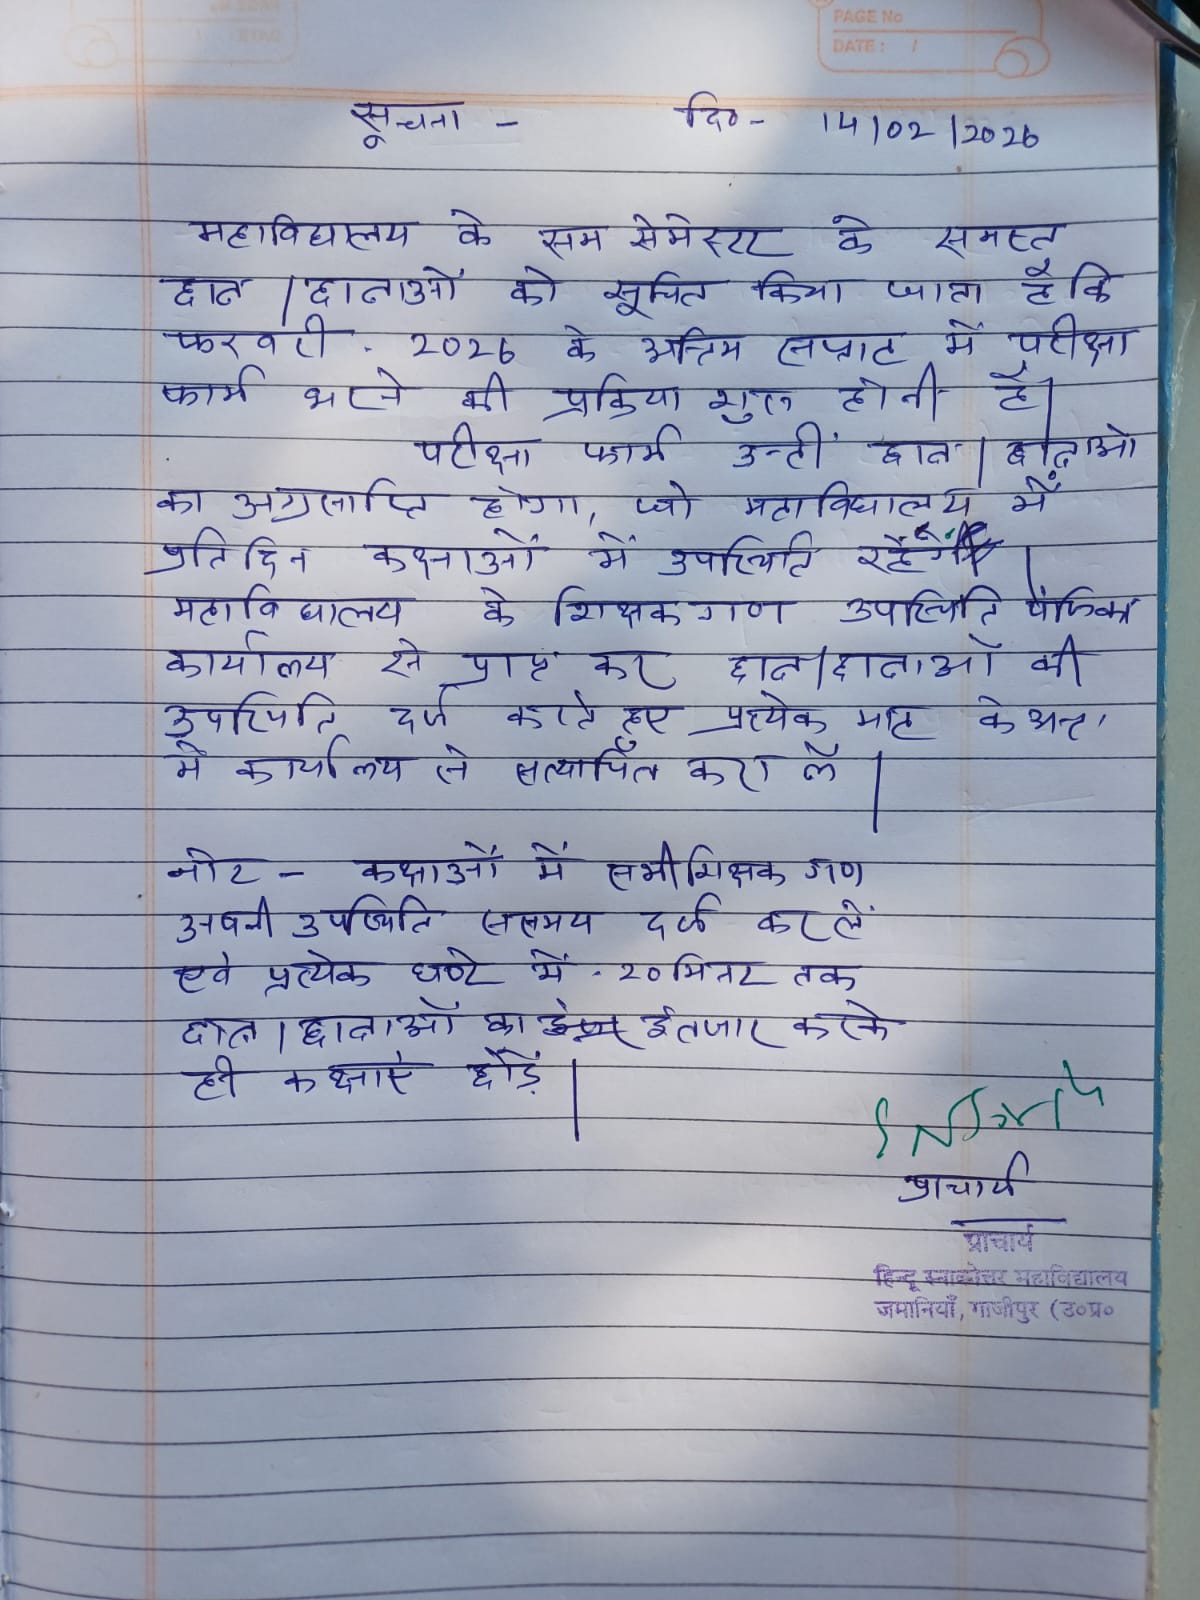 PAGE No
DATE : /
सूचना - दि० - 14/02/2026
महाविद्यालय के सम सेमेस्टर के समस्त
छात्र/छात्राओं को सूचित किया जाता है कि
फरवरी . 2026 के अन्तिम सप्ताह में परीक्षा
फार्म भरने की प्रक्रिया शुरू होनी है।
परीक्षा फार्म उन्हीं छात्र/छात्राओं
का अग्रसारित होगा, जो महाविद्यालय में
प्रतिदिन कक्षाओं में उपस्थिति रहेंगे।
महाविद्यालय के शिक्षकगण उपस्थिति पंजिका
कार्यालय से प्राप्त कर छात्र/छात्राओं की
उपस्थिति दर्ज करते हुए प्रत्येक माह के अन्त
में कार्यालय से सत्यापित करा लें।
नोट - कक्षाओं में सभी शिक्षक गण
अपनी उपस्थिति ससमय दर्ज कर लें
एवं प्रत्येक घण्टे में 20 मिनट तक
छात्र/छात्राओं का ईतजार करके
ही कक्षाएं छोड़ें।
प्राचार्य
प्राचार्य
हिन्दू स्नाकोत्तर महाविद्यालय
जमानियाँ, गाजीपुर (उ०प्र०